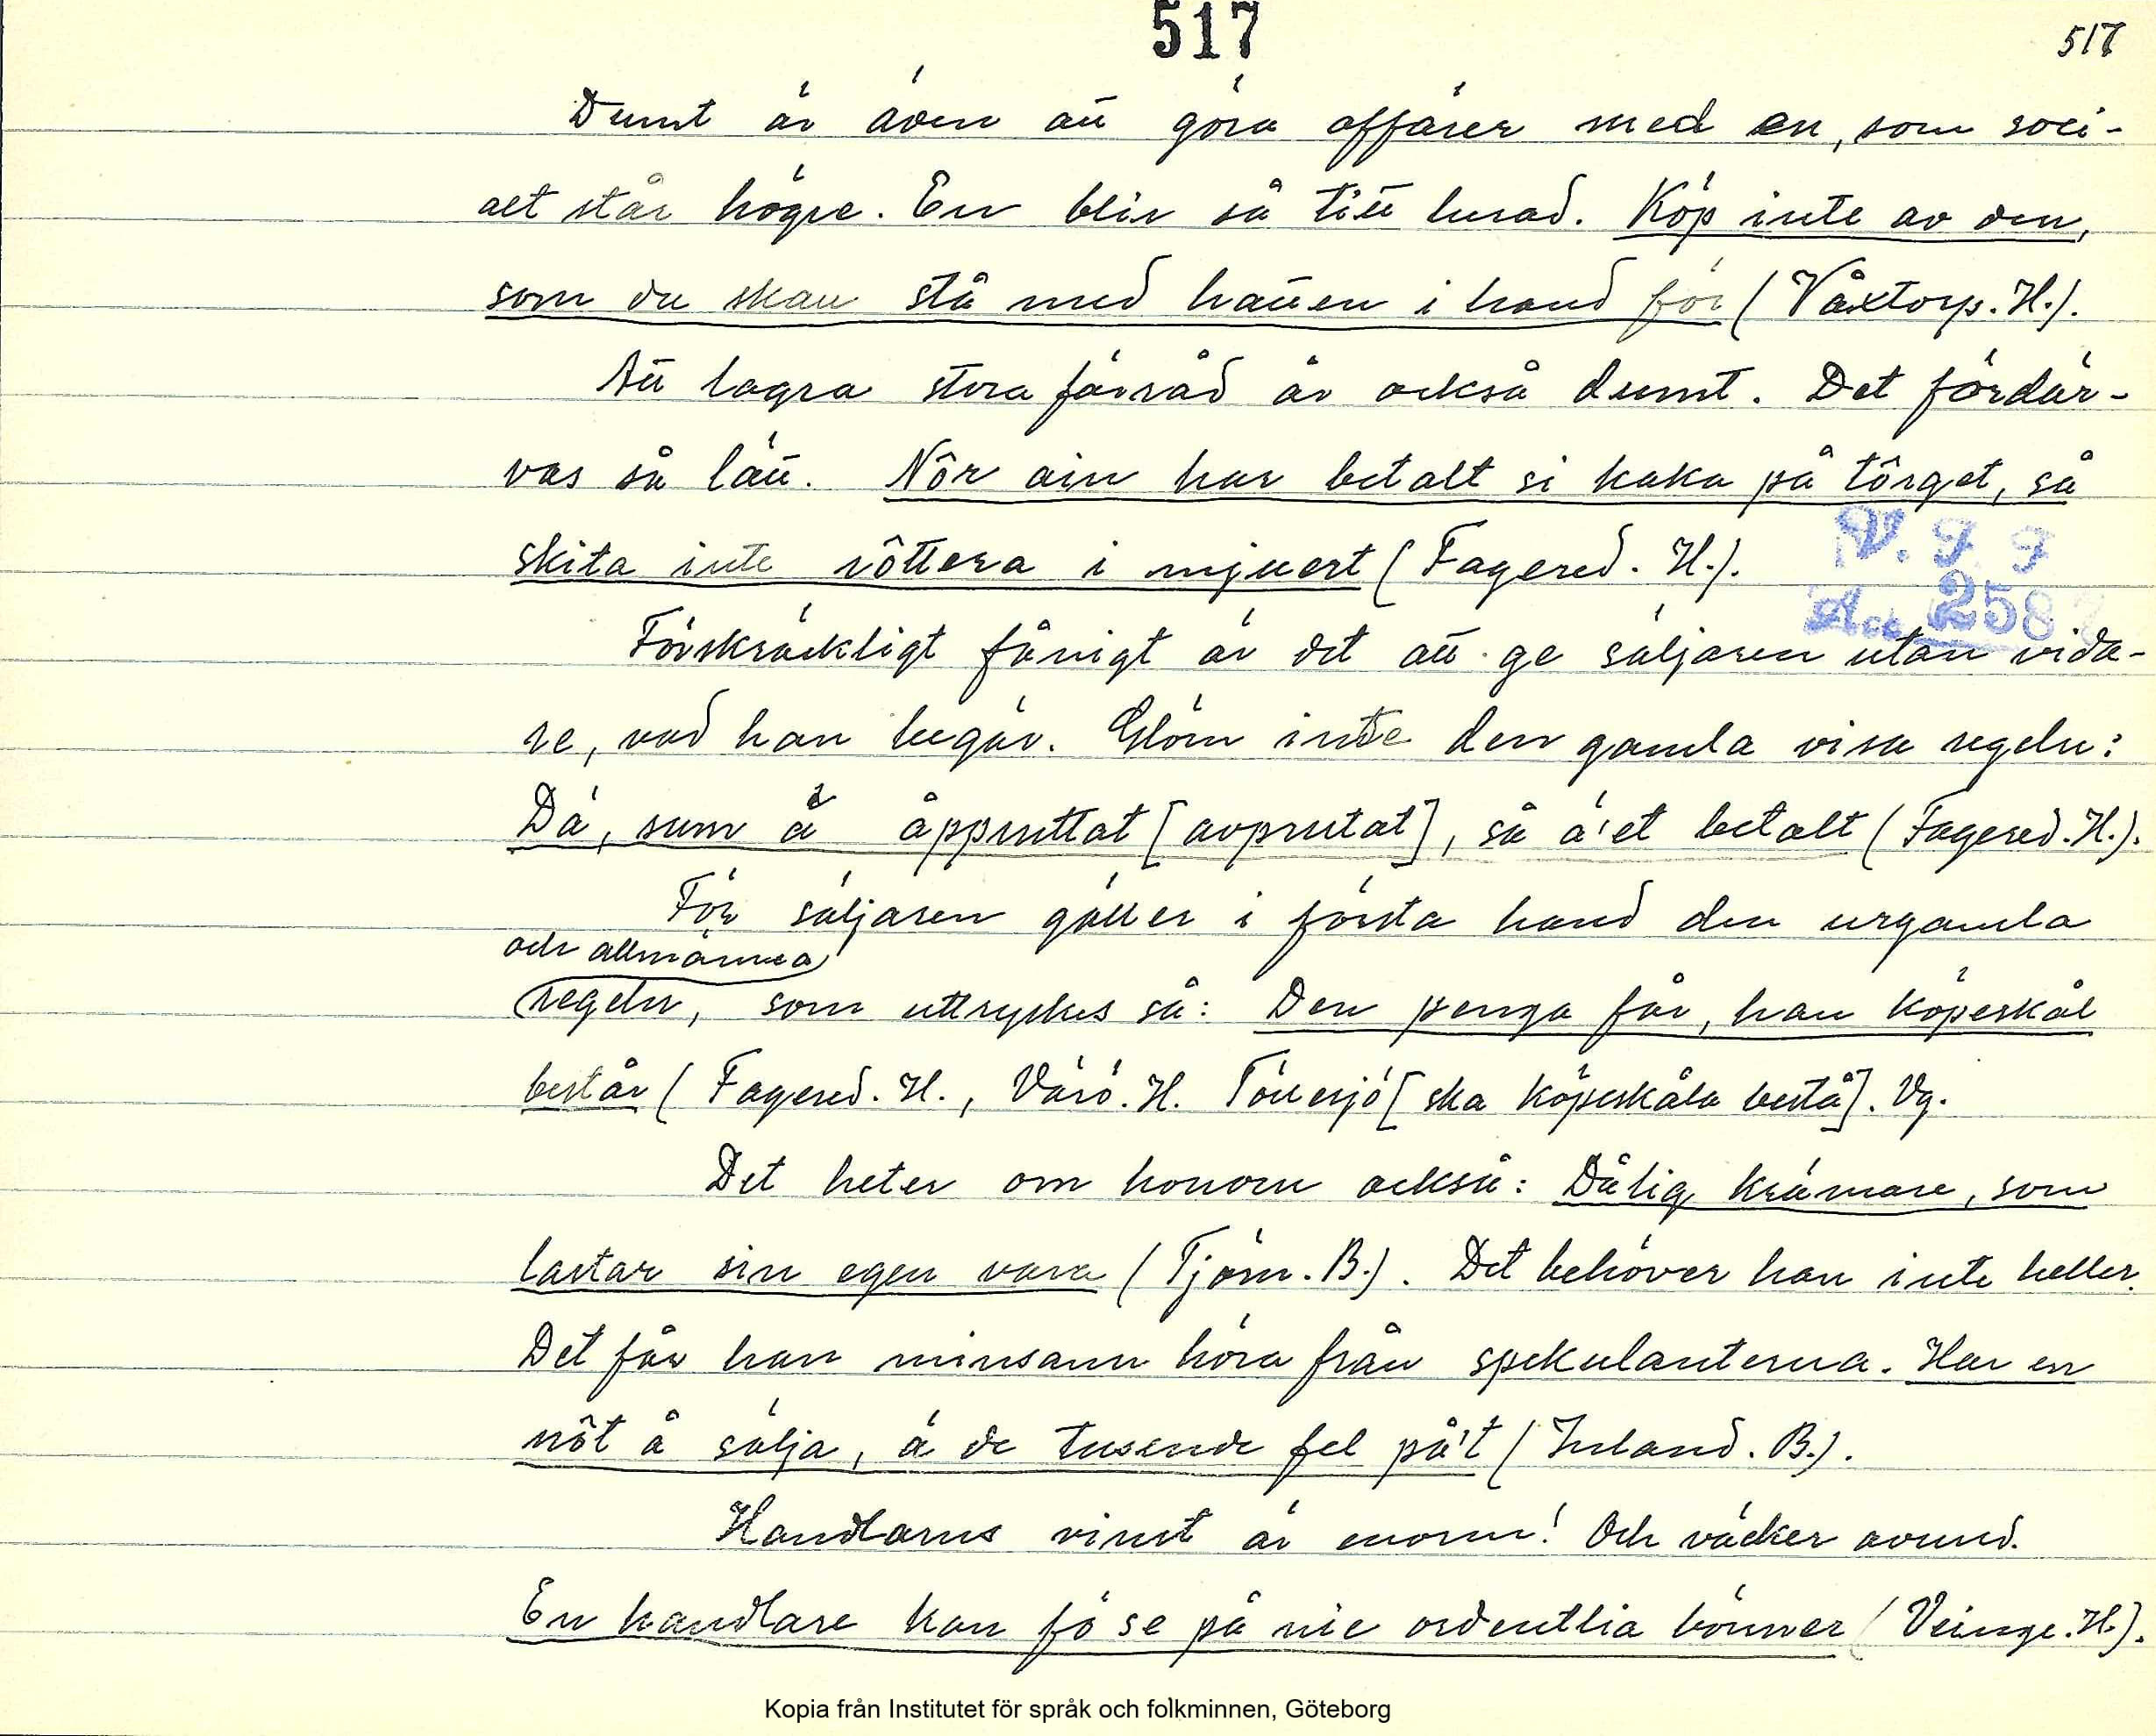 517
517
Dumt är även att göra affärer med en, som soci-
alt står högre. En blir så titt lurad. Köp inte av den,
som du skall stå med hatten i hand för (Våxtorp. H.).
Att lagra stora förråd är också dumt. Det fördär-
vas så lätt. Nôr ain har betalt si kaka på tôrget, så
skita inte rôttera i mjuert (Fagered. H.).
V. F. F
Acc 258
Förskräckligt fånigt är det att ge säljaren utan vida-
re, vad han begär. Glöm inte den gamla visa regeln:
Dä, sum ä åppruttat [avprutat], så ä'et betalt (Fagered. H.).
För säljaren gäller i första hand den urgamla
och allmänna
regeln, som uttryckes så: Den penga får, han köpeskål
består (Fagered. H., Värö. H. Töllesjö [ska köpskåla bestå]. Vg.
Det heter om honom också: Dålig krämare, som
lastar sin egen vara (Tjörn. B.). Det behöver han inte heller.
Det får han minsann höra från spekulanterna. Har en
nôt å sälja, ä de tusende fel på't (Inland. B.).
Handlarns vinst är enorm! Och väcker avund.
En handlare kan fö se på nie ordentlia bönner (Veinge. H.).
Kopia från Institutet för språk och folkminnen, Göteborg